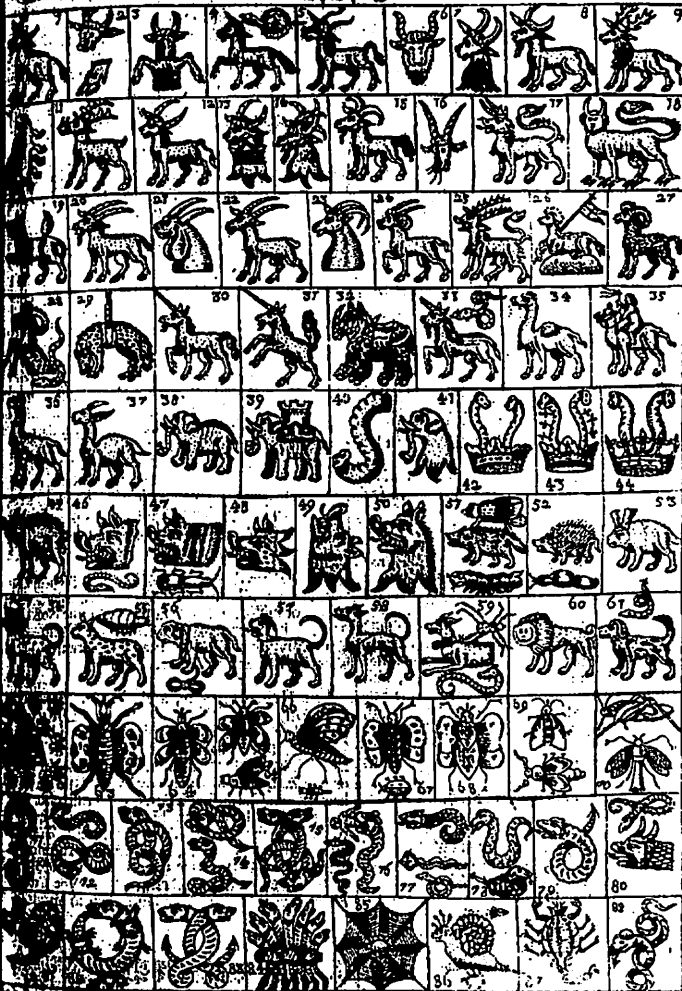 1 2 3 4 5 6 7 8 9
11 12 13 14 15 16 17 18
19 20 21 22 23 24 25 26 27
28 29 30 31 32 33 34 35
36 37 38 39 40 41 42 43 44
46 47 48 49 50 51 52 53
55 56 57 58 59 60 61
63 64 66 67 68 69 70
72 73 74 75 77 78 79 80
85 86 87 88